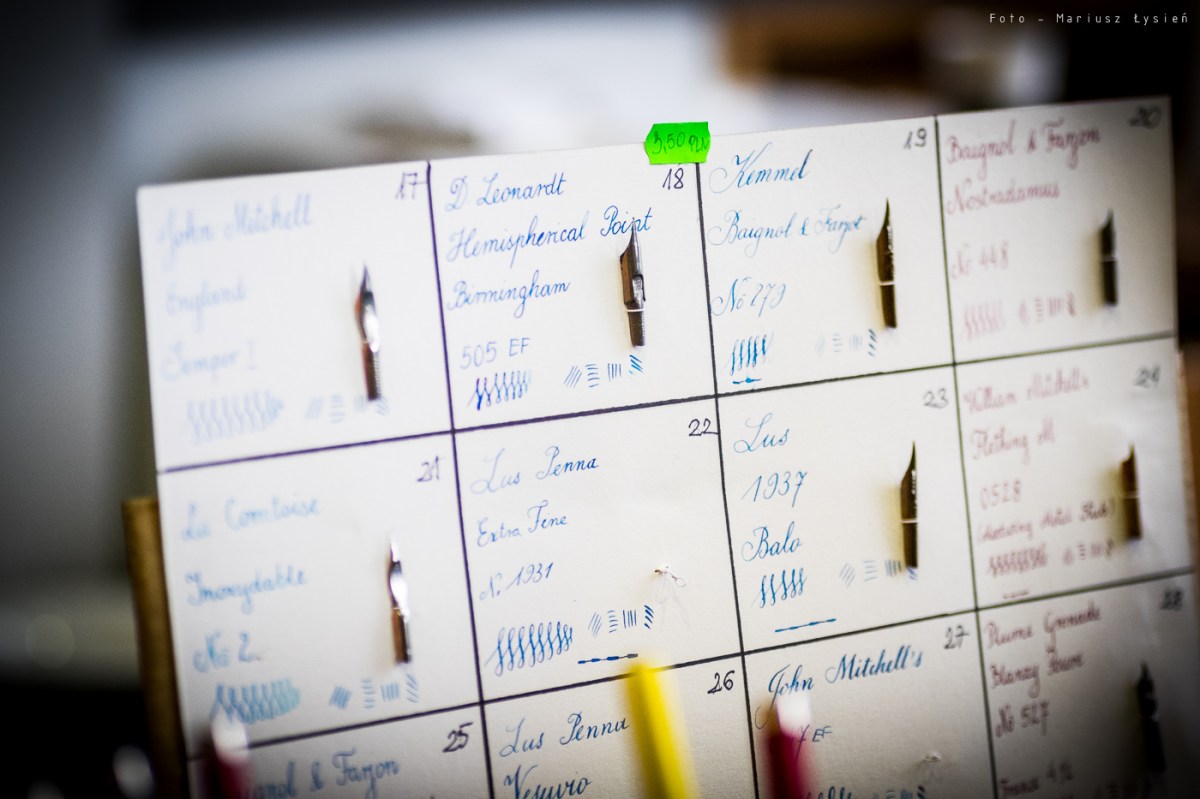 Foto - Mariusz Łysień
3,50
17
John Mitchell
England
Semper I
18
D. Leonardt
Hemispherical Point
Birmingham
505 EF
19
Kemmel
Baignol & Farjot
No 273
20
Baignol & Farjon
Nostradamus
No 448
21
La Comtoise
Inoxydable
No 2.
22
Lus Penna
Extra Fine
N. 1931
23
Lus
1937
Balo
24
William Mitchell's
M
0528
25
& Farjon
26
Lus Penna
Vesuvio
27
John Mitchell's
EF
28
Plume
No 527
France